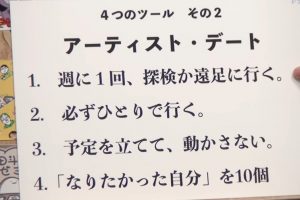 4つのツール その2
アーティスト・デート
1. 週に1回、探検か遠足に行く。
2. 必ずひとりで行く。
3. 予定を立てて、動かさない。
4.「なりたかった自分」を10個